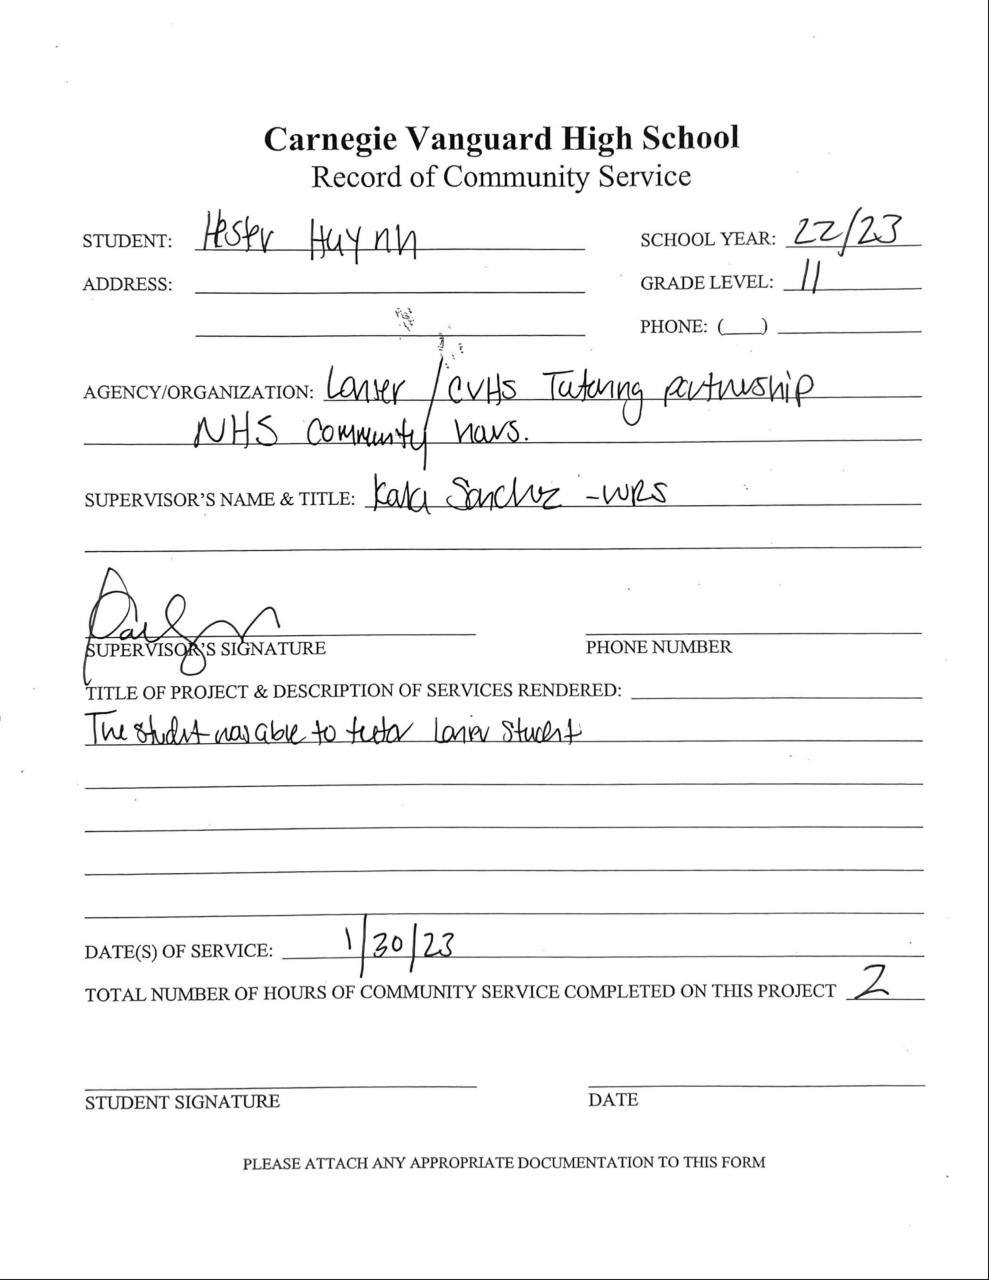 Carnegie Vanguard High School
Record of Community Service
STUDENT: Hester Huynh SCHOOL YEAR: 22/23
ADDRESS: GRADE LEVEL: 11
PHONE: (___)
AGENCY/ORGANIZATION: Lanier / CVHS Tutoring partnership
NHS Community hours.
SUPERVISOR'S NAME & TITLE: Sanchez
SUPERVISOR'S SIGNATURE PHONE NUMBER
TITLE OF PROJECT & DESCRIPTION OF SERVICES RENDERED:
The student was able to tutor Lanier Student
DATE(S) OF SERVICE: 1/30/23
TOTAL NUMBER OF HOURS OF COMMUNITY SERVICE COMPLETED ON THIS PROJECT 2
STUDENT SIGNATURE DATE
PLEASE ATTACH ANY APPROPRIATE DOCUMENTATION TO THIS FORM